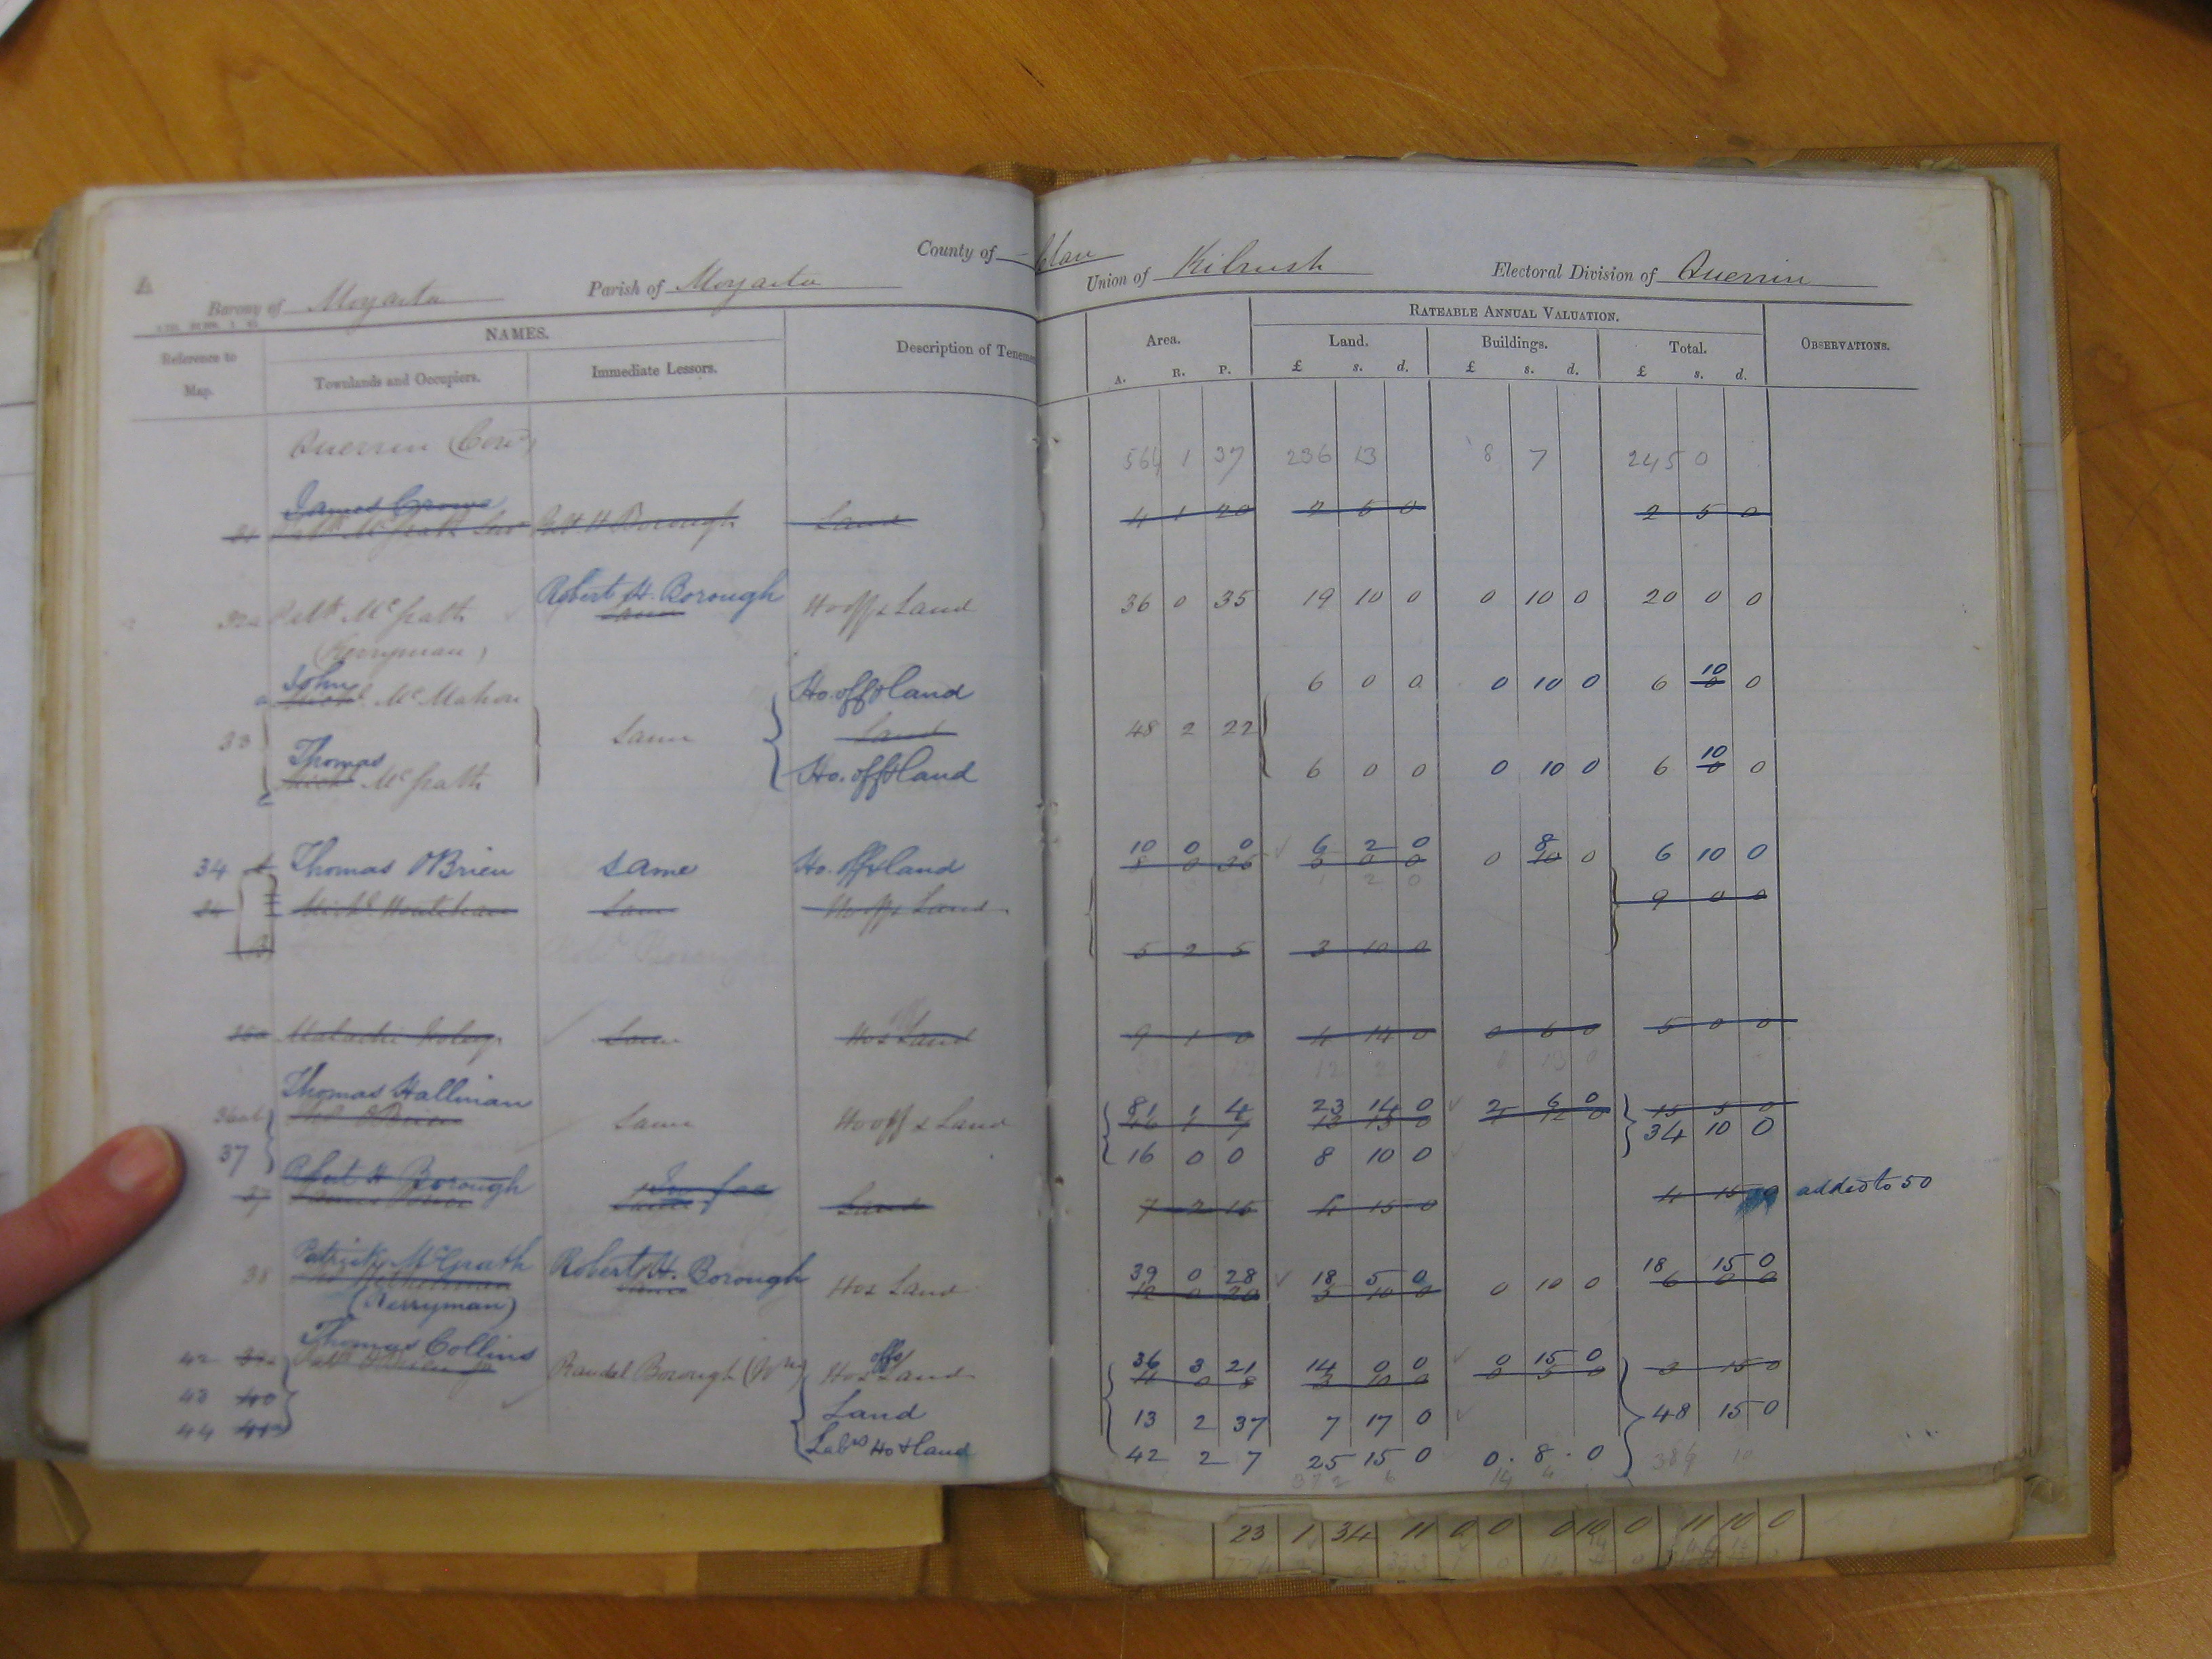 County of Clare
Barony of Moyarta Parish of Moyarta Union of Kilrush Electoral Division of Querrin
NAMES. RATEABLE ANNUAL VALUATION.
Reference to Map. Townlands and Occupiers. Immediate Lessors. Description of Tenemen Area. Land. Buildings. Total. OBSERVATIONS.
A. R. P. £ s. d. £ s. d. £ s. d.
Querrin (Con)
564 1 37 236 13 8 7 245 0
James
31 Patk McGrath H Borough Land 4 1 20 2 5 0 2 5 0
Robert H. Borough
32a Patk McGrath Same Ho offs & Land 36 0 35 19 10 0 0 10 0 20 0 0
(Kerryman)
John Ho. offs & land 10
a McMahon 6 0 0 0 10 0 6 0 0
33 Same Land 48 2 22
Thomas 10
Michl McGrath Ho. offs & land 6 0 0 0 10 0 6 0 0
10 0 0 6 2 0 8
34 Thomas O'Brien same Ho. offs & land 0 10 0 6 10 0
34 Michl Same Ho offs & Land 9 0 0
5 2 5 3 10 0
35a Malachi Same Ho & Land 9 1 0 4 14 0 0 6 0 5 0 0
Thomas Hallinan 81 1 4 23 14 0 2 6 0 15 5 0
36ab O'Brien Same Ho off & Land 34 10 0
37 16 0 0 8 10 0
Robert H Borough In fee
37 Same Land 7 2 16 4 15 0 4 15 0 added to 50
Patrick McGrath Robert H. Borough 39 0 28 18 5 0 18 15 0
38 Same Ho & Land 12 0 20 5 10 0 0 10 0 6 0 0
(Kerryman)
Thomas Collins offs 36 3 21 14 0 0 0 15 0
42 39a Patk O'Brien Jr Randal Borough Ho & Land 3 10 0 0 5 0 3 15 0
43 40 Land 13 2 37 7 17 0 48 15 0
44 41a Labrs Ho & land 42 2 7 25 15 0 0 . 8 . 0 389 10
372 6 14 4
23 1 34 11 0 0 0 10 0 11 10 0